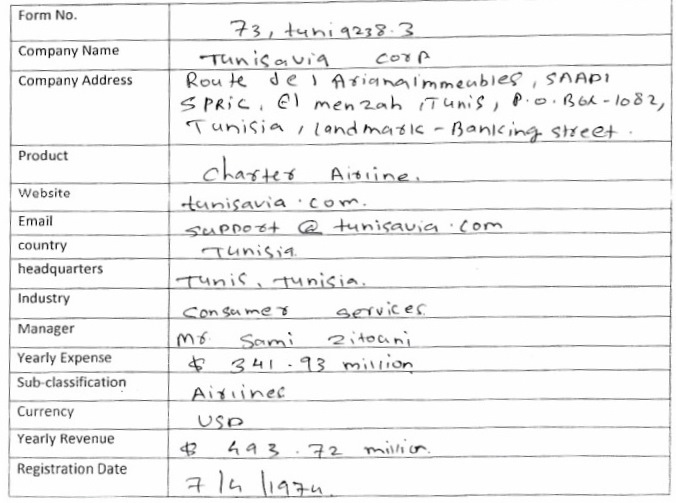 Form No. 73, tuni9238.3
Company Name Tunisavia Corp
Company Address Route de l Arianaimmeubles, SAADI
SPRIC, El menzah, Tunis, P.O.Box-1082,
Tunisia, landmark - Banking street.
Product Charter Airline.
Website tunisavia.com.
Email support@tunisavia.com
country Tunisia
headquarters Tunis, Tunisia.
Industry Consumer services
Manager Mr. Sami Zitouni
Yearly Expense $ 341.93 million
Sub-classification Airlines
Currency USD
Yearly Revenue $ 493.72 million.
Registration Date 7/4/1974.